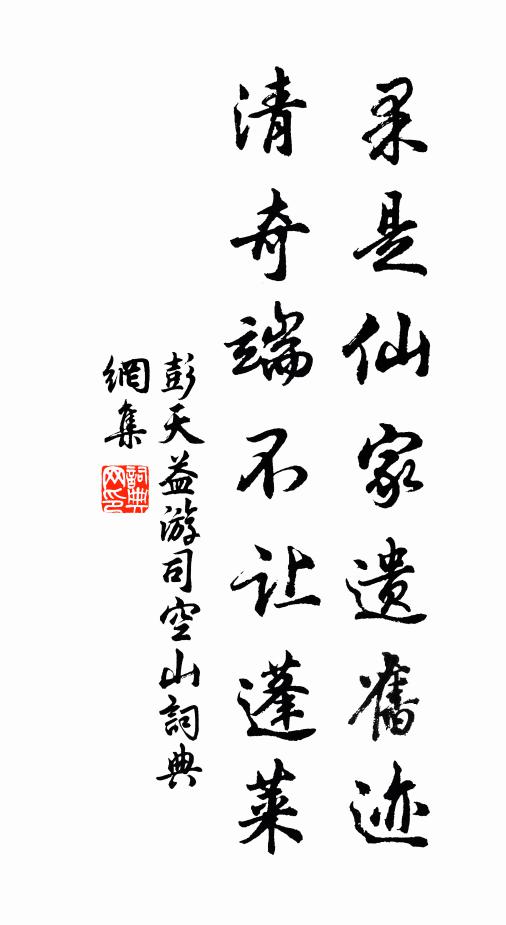 果是仙家遗舊迹
清奇端不让蓬莱
彭天益游司空山詞典
網集
詞典
网印